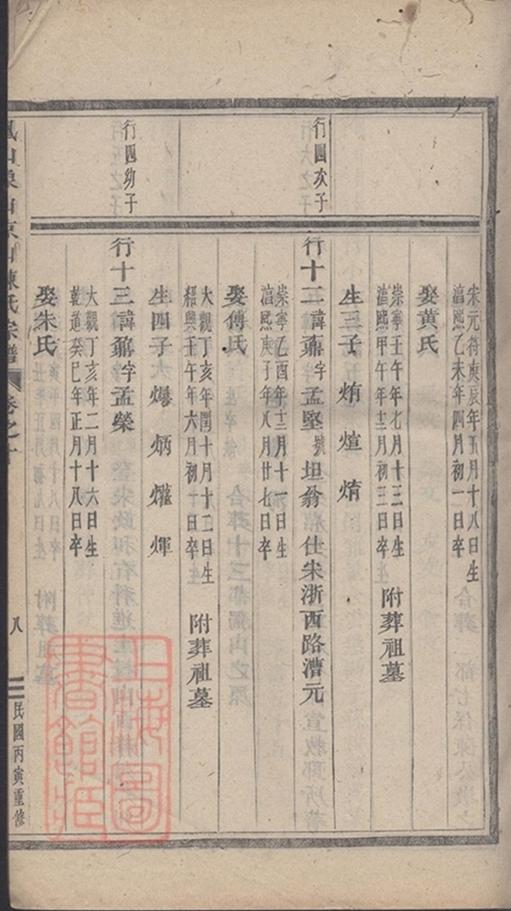 宋元符庚辰年五月十八日生
淳熙乙未年四月初一日卒
娶黃氏
崇寧壬午年七月十三日生
淳熙甲午年十二月初三日卒
附葬祖墓
生三子 焴 煊 焇
行四次子
行十二諱鼐字孟堅號坦翁仕宋浙西路漕元
崇寧乙酉年十二月十一日生
淳熙庚子年八月廿七日卒
娶傅氏
大觀丁亥年閏十月十二日生
紹興壬午年六月初十日卒
附葬祖墓
生四子 爆 炳 爟 煇
行四幼子
行十三諱鼒字孟榮
大觀丁亥年二月十六日生
乾道癸巳年正月十八日卒
娶朱氏
陳氏宗譜
卷之
八
民國丙寅重修
上海圖書館藏